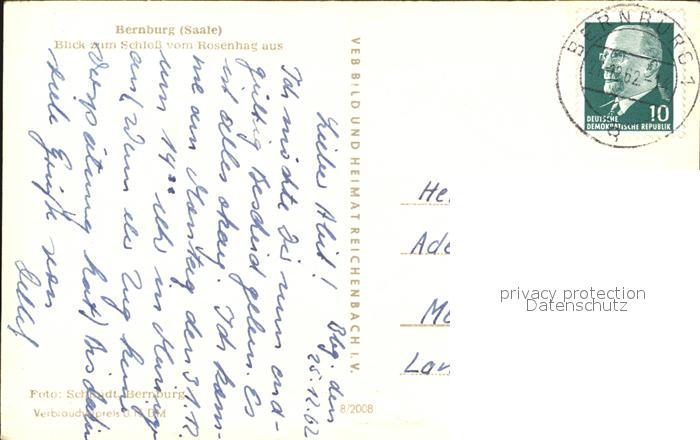 Bernburg (Saale)
Blick zum Schloß vom Rosenhag aus
Bbg. den
25.12.62
Lieber !
Ich möchte Dir nun end-
gültig Bescheid geben. Es
ist alles okay. Ich kom-
me am Montag den 31.12.
um 14 Uhr in
an, (wenn der Zug keine
Verspätung hat) Bis dahin
viele Grüße von
Detlef
VEB BILD UND HEIMAT REICHENBACH I. V.
BERNBURG 1
62
10
DEUTSCHE
DEMOKRATISCHE REPUBLIK
He
Ade
Me
Lan
privacy protection
Datenschutz
Foto: Schmidt, Bernburg
Verbraucherpreis 0,15 DM
8/2008